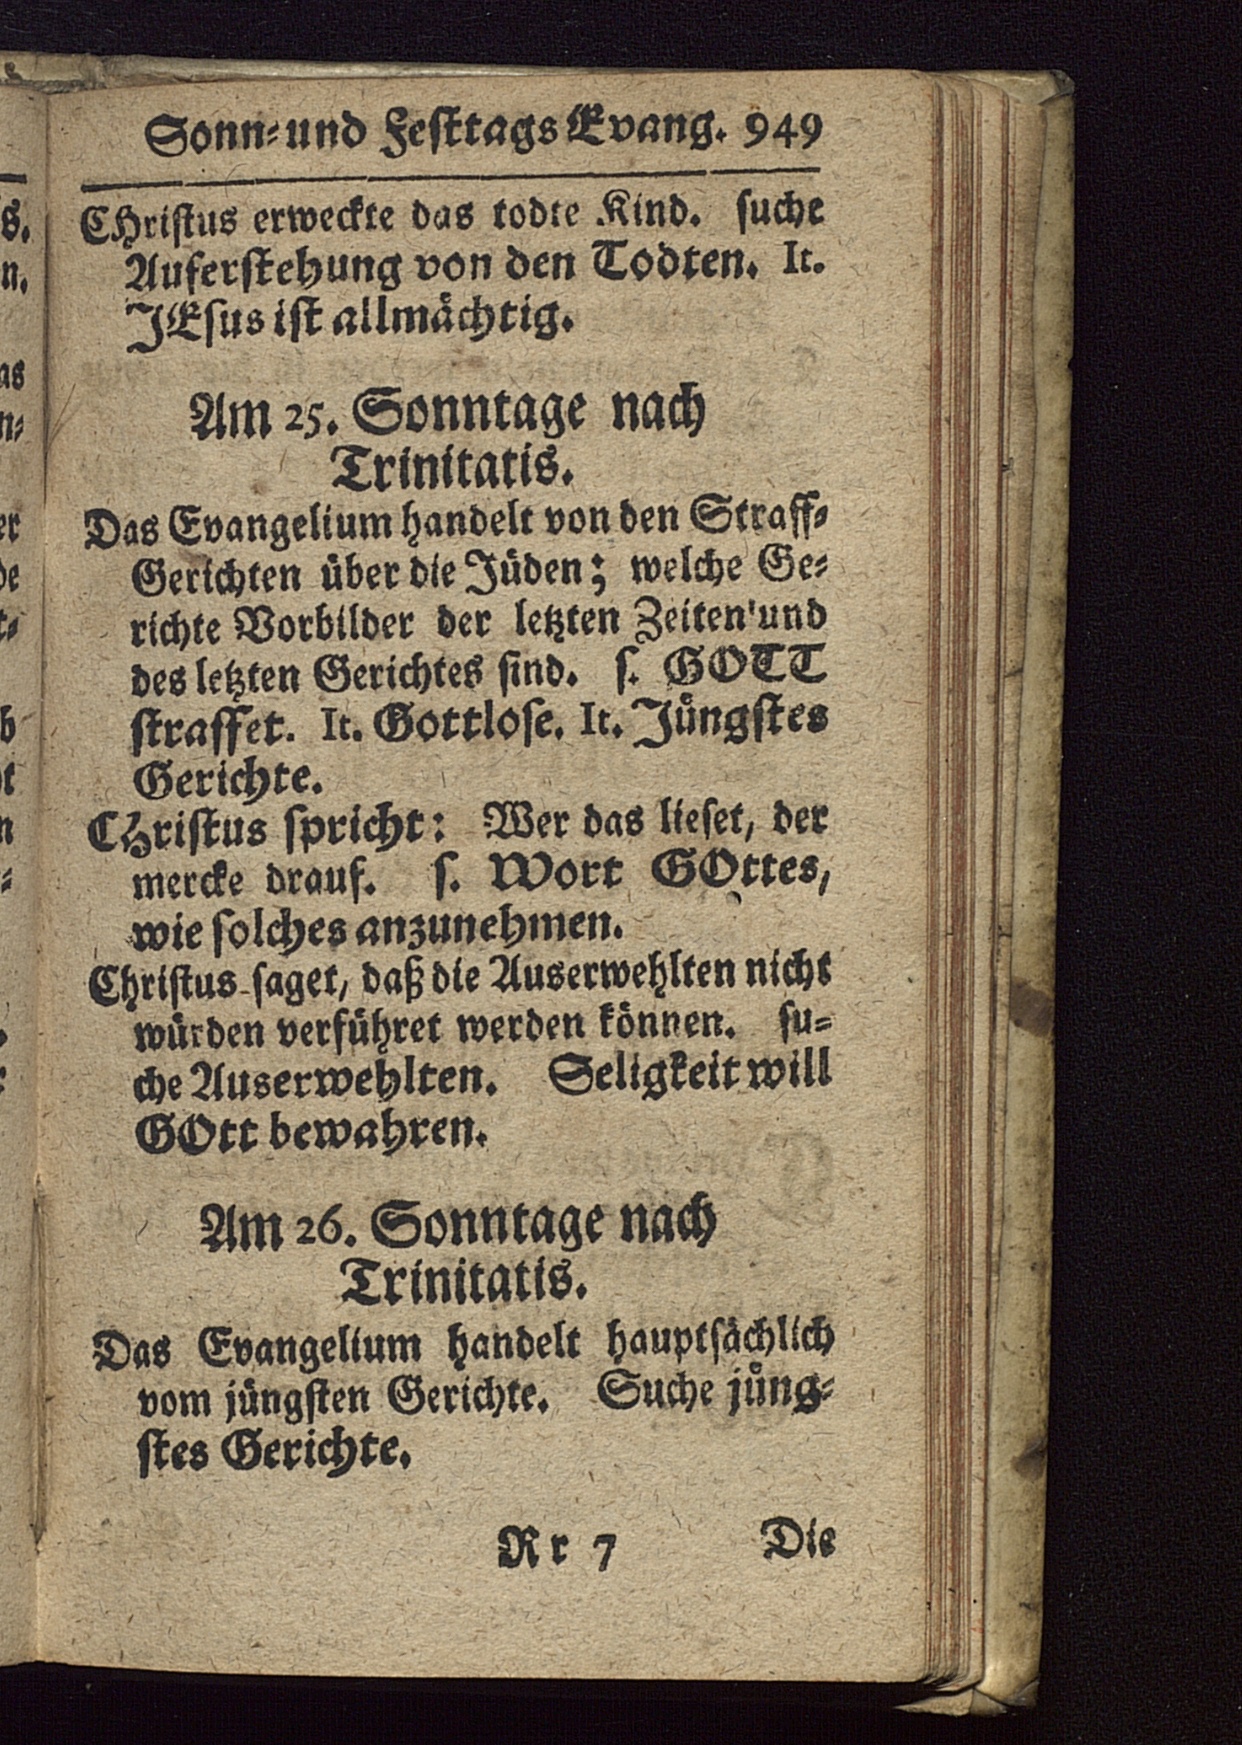 Sonn- und Festtags Evang. 949
CHristus erweckte das todte Kind. suche
Auferstehung von den Todten. It.
JEsus ist allmächtig.
Am 25. Sonntage nach
Trinitatis.
Das Evangelium handelt von den Straff-
Gerichten über die Jüden; welche Ge-
richte Vorbilder der letzten Zeiten und
des letzten Gerichtes sind. s. GOTT
straffet. It. Gottlose. It. Jüngstes
Gerichte.
CHristus spricht: Wer das lieset, der
mercke drauf. s. Wort GOttes,
wie solches anzunehmen.
Christus saget, daß die Auserwehlten nicht
würden verführet werden können. su-
che Auserwehlten. Seligkeit will
GOtt bewahren.
Am 26. Sonntage nach
Trinitatis.
Das Evangelium handelt hauptsächlich
vom jüngsten Gerichte. Suche jüng-
stes Gerichte.
Rr 7 Die